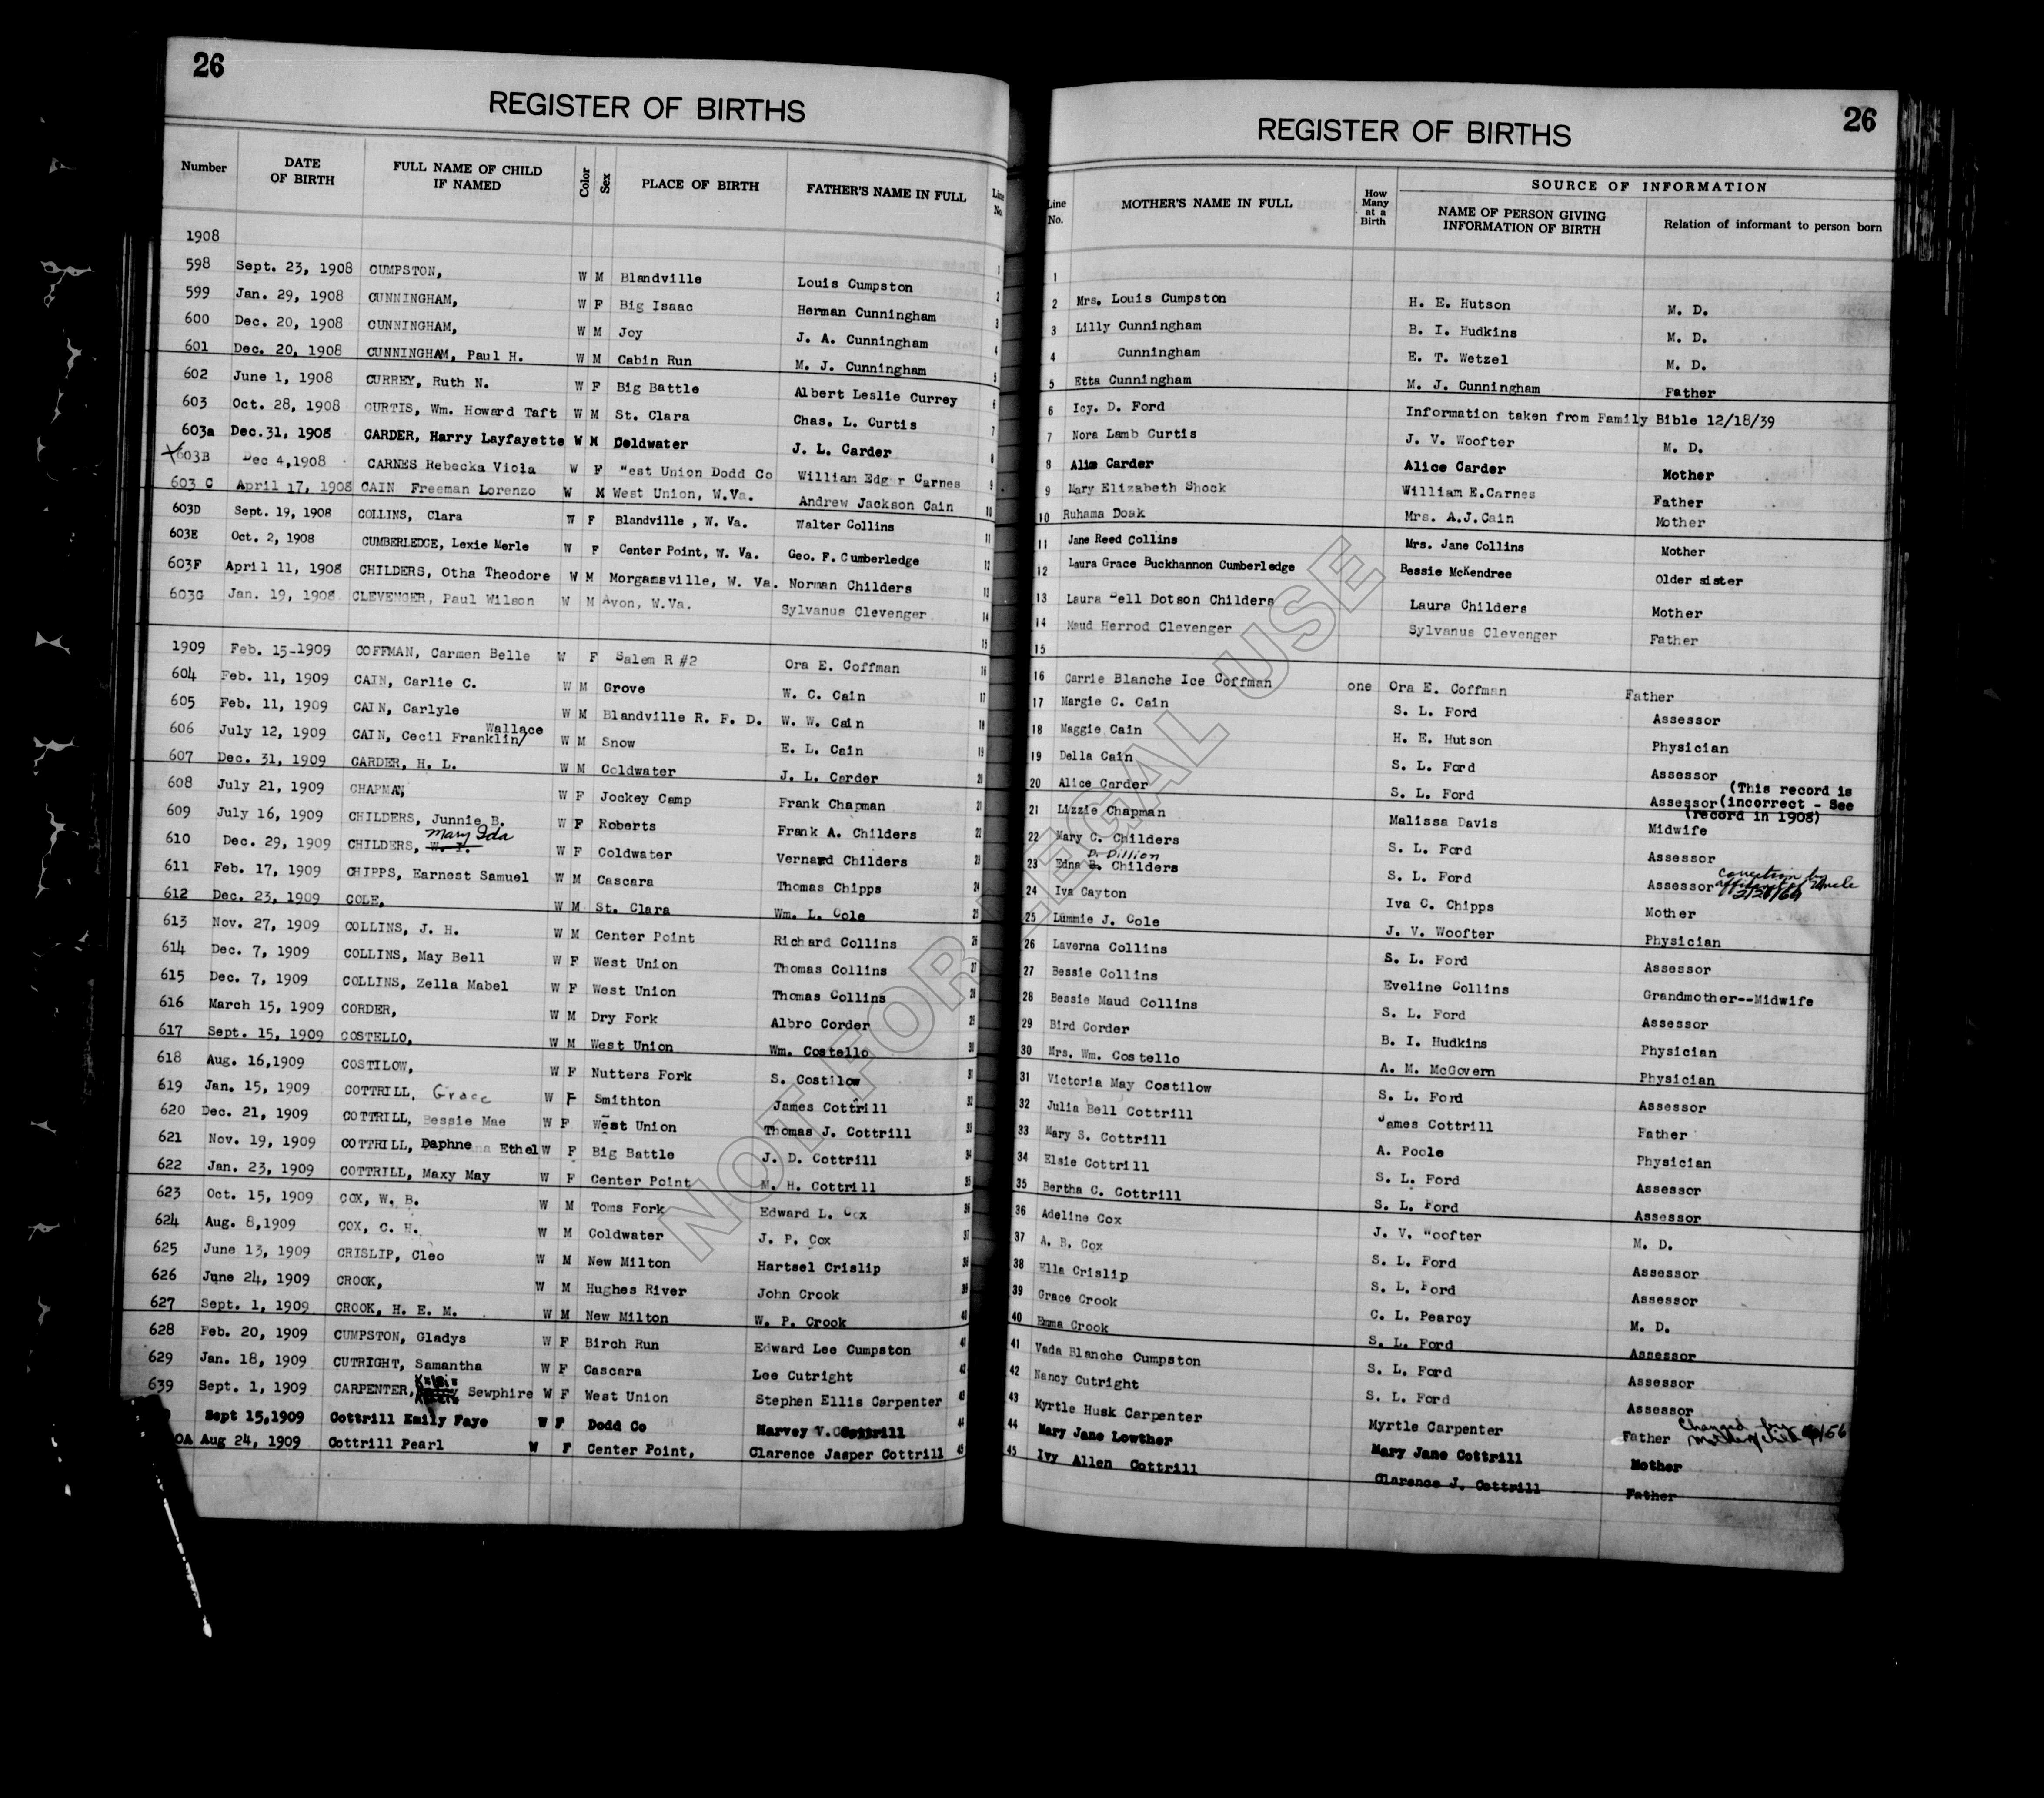 26
REGISTER OF BIRTHS
Number DATE OF BIRTH FULL NAME OF CHILD IF NAMED Color Sex PLACE OF BIRTH FATHER'S NAME IN FULL Line No.
1908 1
598 Sept. 23, 1908 CUMPSTON, W M Blandville Louis Cumpston 2
599 Jan. 29, 1908 CUNNINGHAM, W F Big Isaac Herman Cunningham 3
600 Dec. 20, 1908 CUNNINGHAM, W M Joy J. A. Cunningham 4
601 Dec. 20, 1908 CUNNINGHAM, Paul H. W M Cabin Run M. J. Cunningham 5
602 June 1, 1908 CURREY, Ruth N. W F Big Battle Albert Leslie Currey 6
603 Oct. 28, 1908 CURTIS, Wm. Howard Taft W M St. Clara Chas. L. Curtis 7
603a Dec.31, 1908 CARDER, Harry Layfayette W M Coldwater J. L. Carder 8
603B Dec 4,1908 CARNES Rebecka Viola W F West Union Dodd Co William Edg r Carnes 9
603 C April 17, 1908 CAIN Freeman Lorenzo W M West Union, W.Va. Andrew Jackson Cain 10
603D Sept. 19, 1908 COLLINS, Clara W F Blandville , W. Va. Walter Collins 11
603E Oct. 2, 1908 CUMBERLEDGE, Lexie Merle W F Center Point, W. Va. Geo. F. Cumberledge 12
603F April 11, 1908 CHILDERS, Otha Theodore W M Morgansville, W. Va. Norman Childers 13
603G Jan. 19, 1908 CLEVENGER, Paul Wilson W M Avon, W.Va. Sylvanus Clevenger 14
15
1909 Feb. 15-1909 COFFMAN, Carmen Belle W F Salem R #2 Ora E. Coffman 16
604 Feb. 11, 1909 CAIN, Carlie C. W M Grove W. C. Cain 17
605 Feb. 11, 1909 CAIN, Carlyle W M Blandville R. F. D. W. W. Cain 18
Wallace
606 July 12, 1909 CAIN, Cecil Franklin/ W M Snow E. L. Cain 19
607 Dec. 31, 1909 CARDER, H. L. W M Coldwater J. L. Carder 20
608 July 21, 1909 CHAPMAN, W F Jockey Camp Frank Chapman 21
609 July 16, 1909 CHILDERS, Junnie B. W F Roberts Frank A. Childers 22
Mary Ida
610 Dec. 29, 1909 CHILDERS, W. I. W F Coldwater Vernard Childers 23
611 Feb. 17, 1909 CHIPPS, Earnest Samuel W M Cascara Thomas Chipps 24
612 Dec. 23, 1909 COLE, W M St. Clara Wm. L. Cole 25
613 Nov. 27, 1909 COLLINS, J. H. W M Center Point Richard Collins 26
614 Dec. 7, 1909 COLLINS, May Bell W F West Union Thomas Collins 27
615 Dec. 7, 1909 COLLINS, Zella Mabel W F West Union Thomas Collins 28
616 March 15, 1909 CORDER, W M Dry Fork Albro Corder 29
617 Sept. 15, 1909 COSTELLO, W M West Union Wm. Costello 30
618 Aug. 16,1909 COSTILOW, W F Nutters Fork S. Costilow 31
619 Jan. 15, 1909 COTTRILL, Grace W F Smithton James Cottrill 32
620 Dec. 21, 1909 COTTRILL, Bessie Mae W F West Union Thomas J. Cottrill 33
621 Nov. 19, 1909 COTTRILL, Daphne Ethel W F Big Battle J. D. Cottrill 34
622 Jan. 23, 1909 COTTRILL, Maxy May W F Center Point M. H. Cottrill 35
623 Oct. 15, 1909 COX, W. B. W M Toms Fork Edward L. Cox 36
624 Aug. 8,1909 COX, C. H. W M Coldwater J. P. Cox 37
625 June 13, 1909 CRISLIP, Cleo W M New Milton Hartsel Crislip 38
626 June 24, 1909 CROOK, W M Hughes River John Crook 39
627 Sept. 1, 1909 CROOK, H. E. M. W M New Milton W. P. Crook 40
628 Feb. 20, 1909 CUMPSTON, Gladys W F Birch Run Edward Lee Cumpston 41
629 Jan. 18, 1909 CUTRIGHT, Samantha W F Cascara Lee Cutright 42
639 Sept. 1, 1909 CARPENTER, Sewphire W F West Union Stephen Ellis Carpenter 43
Sept 15,1909 Cottrill Emily Faye W F Dodd Co Harvey V. Cottrill 44
0A Aug 24, 1909 Cottrill Pearl W F Center Point, Clarence Jasper Cottrill 45
26
REGISTER OF BIRTHS
Line No. MOTHER'S NAME IN FULL How Many at a Birth SOURCE OF INFORMATION
NAME OF PERSON GIVING INFORMATION OF BIRTH Relation of informant to person born
1
2 Mrs. Louis Cumpston H. E. Hutson M. D.
3 Lilly Cunningham B. I. Hudkins M. D.
4 Cunningham E. T. Wetzel M. D.
5 Etta Cunningham M. J. Cunningham Father
6 Icy. D. Ford Information taken from Family Bible 12/18/39
7 Nora Lamb Curtis J. V. Woofter M. D.
8 Alice Carder Alice Carder Mother
9 Mary Elizabeth Shock William E.Carnes Father
10 Ruhama Doak Mrs. A.J.Cain Mother
11 Jane Reed Collins Mrs. Jane Collins Mother
12 Laura Grace Buckhannon Cumberledge Bessie McKendree Older sister
13 Laura Bell Dotson Childers Laura Childers Mother
14 Maud Herrod Clevenger Sylvanus Clevenger Father
15
16 Carrie Blanche Ice Coffman one Ora E. Coffman Father
17 Margie C. Cain S. L. Ford Assessor
18 Maggie Cain H. E. Hutson Physician
19 Della Cain S. L. Ford Assessor
20 Alice Carder S. L. Ford Assessor (This record is
(incorrect - See
(record in 1908)
21 Lizzie Chapman Malissa Davis Midwife
22 Mary C. Childers S. L. Ford Assessor
D. Dillion
23 Edna B. Childers S. L. Ford Assessor correction by
affidavit of Uncle
24 Iva Cayton Iva C. Chipps Mother
25 Lummie J. Cole J. V. Woofter Physician
26 Laverna Collins S. L. Ford Assessor
27 Bessie Collins Eveline Collins Grandmother--Midwife
28 Bessie Maud Collins S. L. Ford Assessor
29 Bird Corder B. I. Hudkins Physician
30 Mrs. Wm. Costello A. M. McGovern Physician
31 Victoria May Costilow S. L. Ford Assessor
32 Julia Bell Cottrill James Cottrill Father
33 Mary S. Cottrill A. Poole Physician
34 Elsie Cottrill S. L. Ford Assessor
35 Bertha C. Cottrill S. L. Ford Assessor
36 Adeline Cox J. V. Woofter M. D.
37 A. B. Cox S. L. Ford Assessor
38 Ella Crislip S. L. Ford Assessor
39 Grace Crook C. L. Pearcy M. D.
40 Emma Crook S. L. Ford Assessor
41 Vada Blanche Cumpston S. L. Ford Assessor
42 Nancy Cutright S. L. Ford Assessor
43 Myrtle Husk Carpenter Myrtle Carpenter Father Changed by
44 Mary Jane Lowther Mary Jane Cottrill Mother
45 Ivy Allen Cottrill Clarence J. Cottrill Father
NOT FOR LEGAL USE